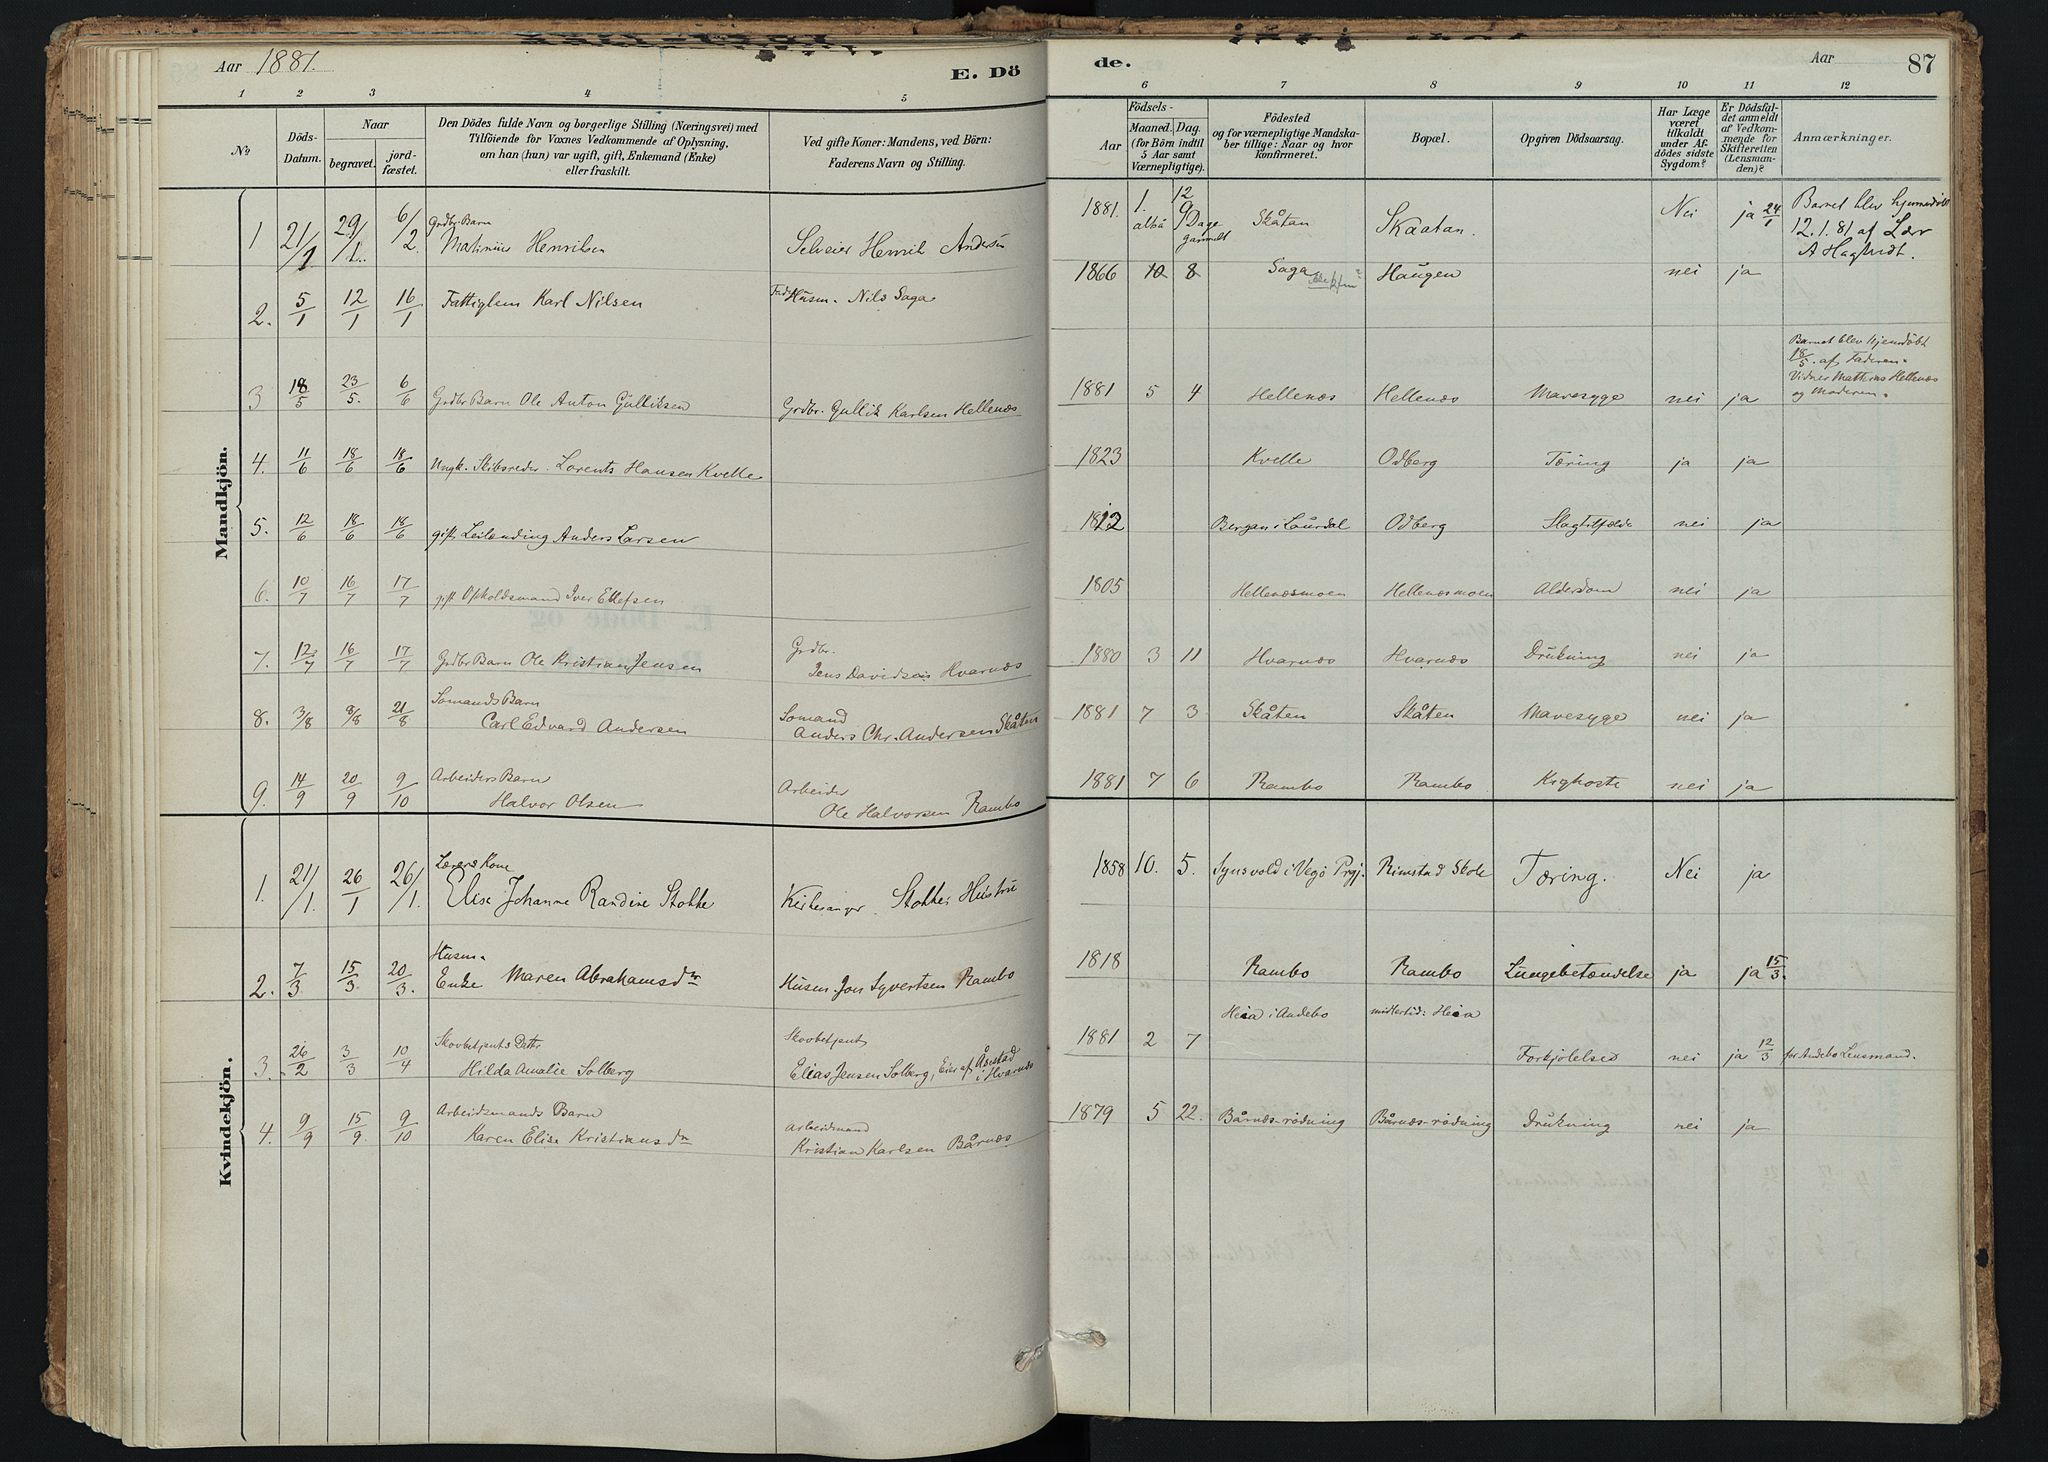 Aar 1881.
E. Dö
de.
Aar
87
1 2 3 4 5 6 7 8 9 10 11 12
No
Döds-
Datum.
Naar
begravet.
jord-
fæstet.
Den Dödes fulde Navn og borgerlige Stilling (Næringsvei) med
Tilföiende for Voxnes Vedkommende af Oplysning,
om han (hun) var ugift, gift, Enkemand (Enke)
eller fraskilt.
Ved gifte Koner: Mandens, ved Börn:
Faderens Navn og Stilling.
Födsels-
Aar
Maaned. Dag.
(for Börn indtil
5 Aar samt
Værnepligtige).
Födested
og for værnepligtige Mandska-
ber tillige: Naar og hvor
konfirmeret.
Bopæl.
Opgiven Dödsaarsag.
Har Læge
været
tilkaldt
under Af-
dödes sidste
Sygdom?
Er Dödsfal-
det anmeldt
af Vedkom-
mende for
Skifteretten
(Lensman-
den)?
Anmærkninger.
Mandkjön.
1 21/1 29/1. 6/2. Grdbr. Barn
Matinius Henriksen
Selveier Henrik Andersen
1881. 1. 12
altså 9 Dage
gammelt
Skåtan Skaatan. Nei ja 24/1
Barnet blev hjemmedöbt
12.1.81 af Lær
A Hagtvedt.
2. 5/1 12/1 16/1 Fattiglem Karl Nilsen
Husm. Nils Saga
1866 10 8 Saga Haugen nei ja
3 18/5 23/5. 6/6 Grdbr Barn Ole Anton Gulliksen Grdbr. Gullik Karlsen Hellenæs
1881 5 4 Hellenæs Hellenæs Mavesyge nei ja
Barnet blev hjemdöbt
18/5. af Faderen.
Vidner Mathias Hellenæs
og Moderen.
4. 11/6 18/6 18/6 Ungk. Skibsreder. Lorents Hansen Kvelle
1823 Kvelle Odberg Tæring ja ja
5. 12/6 18/6 18/6 gift Leilænding Anders Larsen
1812 Bergan i Laurdal Odberg Slagtilfælde nei ja
6. 10/7 16/7 17/7 gift Opholdsmand Iver Ellefsen
1805 Hellenæsmoen Hellenæsmoen Alderdom nei ja
7. 12/7 16/7 17/7 Grdbr Barn Ole Kristian Jensen
Grdbr.
Jens Davidsen Hvarnæs
1880 3 11 Hvarnæs Hvarnæs Drukning nei ja
8. 3/8 8/8 21/8 Sömands Barn
Carl Edvard Andersen
Sömand
Anders Chr. Andersen Skåten
1881 7 3 Skåten Skåten Mavesyge nei ja
9. 14/9 20/9 9/10 Arbeiders Barn
Halvor Olsen
Arbeider
Ole Halvorsen Rambo
1881 7 6 Rambo Rambo Kighoste nei ja
Kvindekjön.
1. 21/1. 26/1 26/1. Lærers Kone
Elise Johanne Randine Stokke
Kirkesanger Stokkes Hustru
1858 10. 5. Synsvold i Vegö Prgj. Rimstad Skole Tæring. Nei ja
2. 7/3 15/3. 20/3. Husm.
Enke Maren Abrahamsdr
Husm. Jon Syvertsen Rambo
1818 Rambo Rambo Lungebetændelse ja ja 15/3.
3. 26/2 3/3 10/4 Skovbetjents Datter
Hilda Amalie Solberg
Skovbetjent
Elias Jensen Solberg, Eier af Åsrstad
i Hvarnæs
1881 2 7 Heia i Andebo midlertid: Heia
Forkjölelse nei ja 12/3 for Andebo Lensmand.
4. 9/9 15/9. 9/10 Arbeidsmands Barn
Karen Elise Kristiansdr
Arbeidmand
Kristian Karlsen Bårnæs
1879 5 22. Bårnæs-rödning Bårnæs-rödning Drukning nei ja